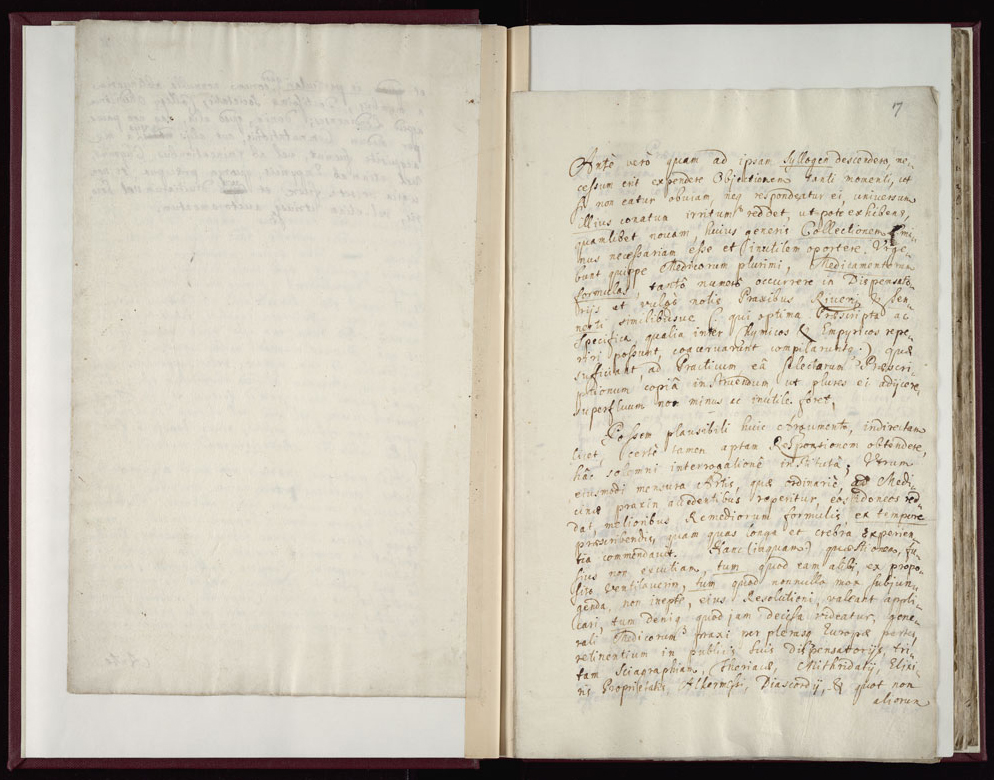 17
Antè verò quam ad ipsam Syllogen descendero, ne-
cessum erit expendere Objectionem tanti momenti, ut
si non eatur obviam, neq respondeatur ei, universum
illius conatum irritum reddet, utpote exhibens,
quamlibet novam huius generis Collectionem mi-
nus necessariam esse et inutilem oportere. Urge-
bunt quippe Medicorum plurimi, Medicamentorum
formulas tanto numero occurrere in Dispensato-
rijs et vulgò notis Praxibus Riverij & Sen-
nerti similibusve (qui optima Præscripta ac
Specifica, qualia inter Chymicos & Empyricos repe-
riri possunt, coacervarunt compilarunt) quæ
sufficiant ad Practicum eâ selectarum Præscri-
ptionum copiâ instruendum ut plures ei adijcere
superfluum non minus ac inutile foret.
Possem plausibili huic Argumento, indirectam
licet certè tamen aptam Responsionem obtendere,
hâc solemni interrogatione institutâ; Utrum
eiusmodi mensura Artis, quæ ordinariè Medi-
cinæ praxin accedentibus reperitur, eos idoneos red-
dat, melioribus Remediorum formulis, ex tempore
præscribendis, quam quas longa et crebra Experien-
tia commendavit. Hanc (inquam) quæstionem, fu-
sius non excutiam, tum quod eam alibi, ex propo-
sito ventilaverim, tum quod nonnulla mox subjun-
genda, non ineptè, eius Resolutioni, valeant appli-
cari, tum deniq quod jam decisa videatur, gene-
rali Medicorum praxi per plerasq Europæ partes,
retinentium in publicis suis Dispensatorijs, tri-
tam Sciagraphiam, Theriacæ, Mithridatij, Elixi-
ris Proprietatis, Alkermesi, Diascordij, & quot non
aliorum